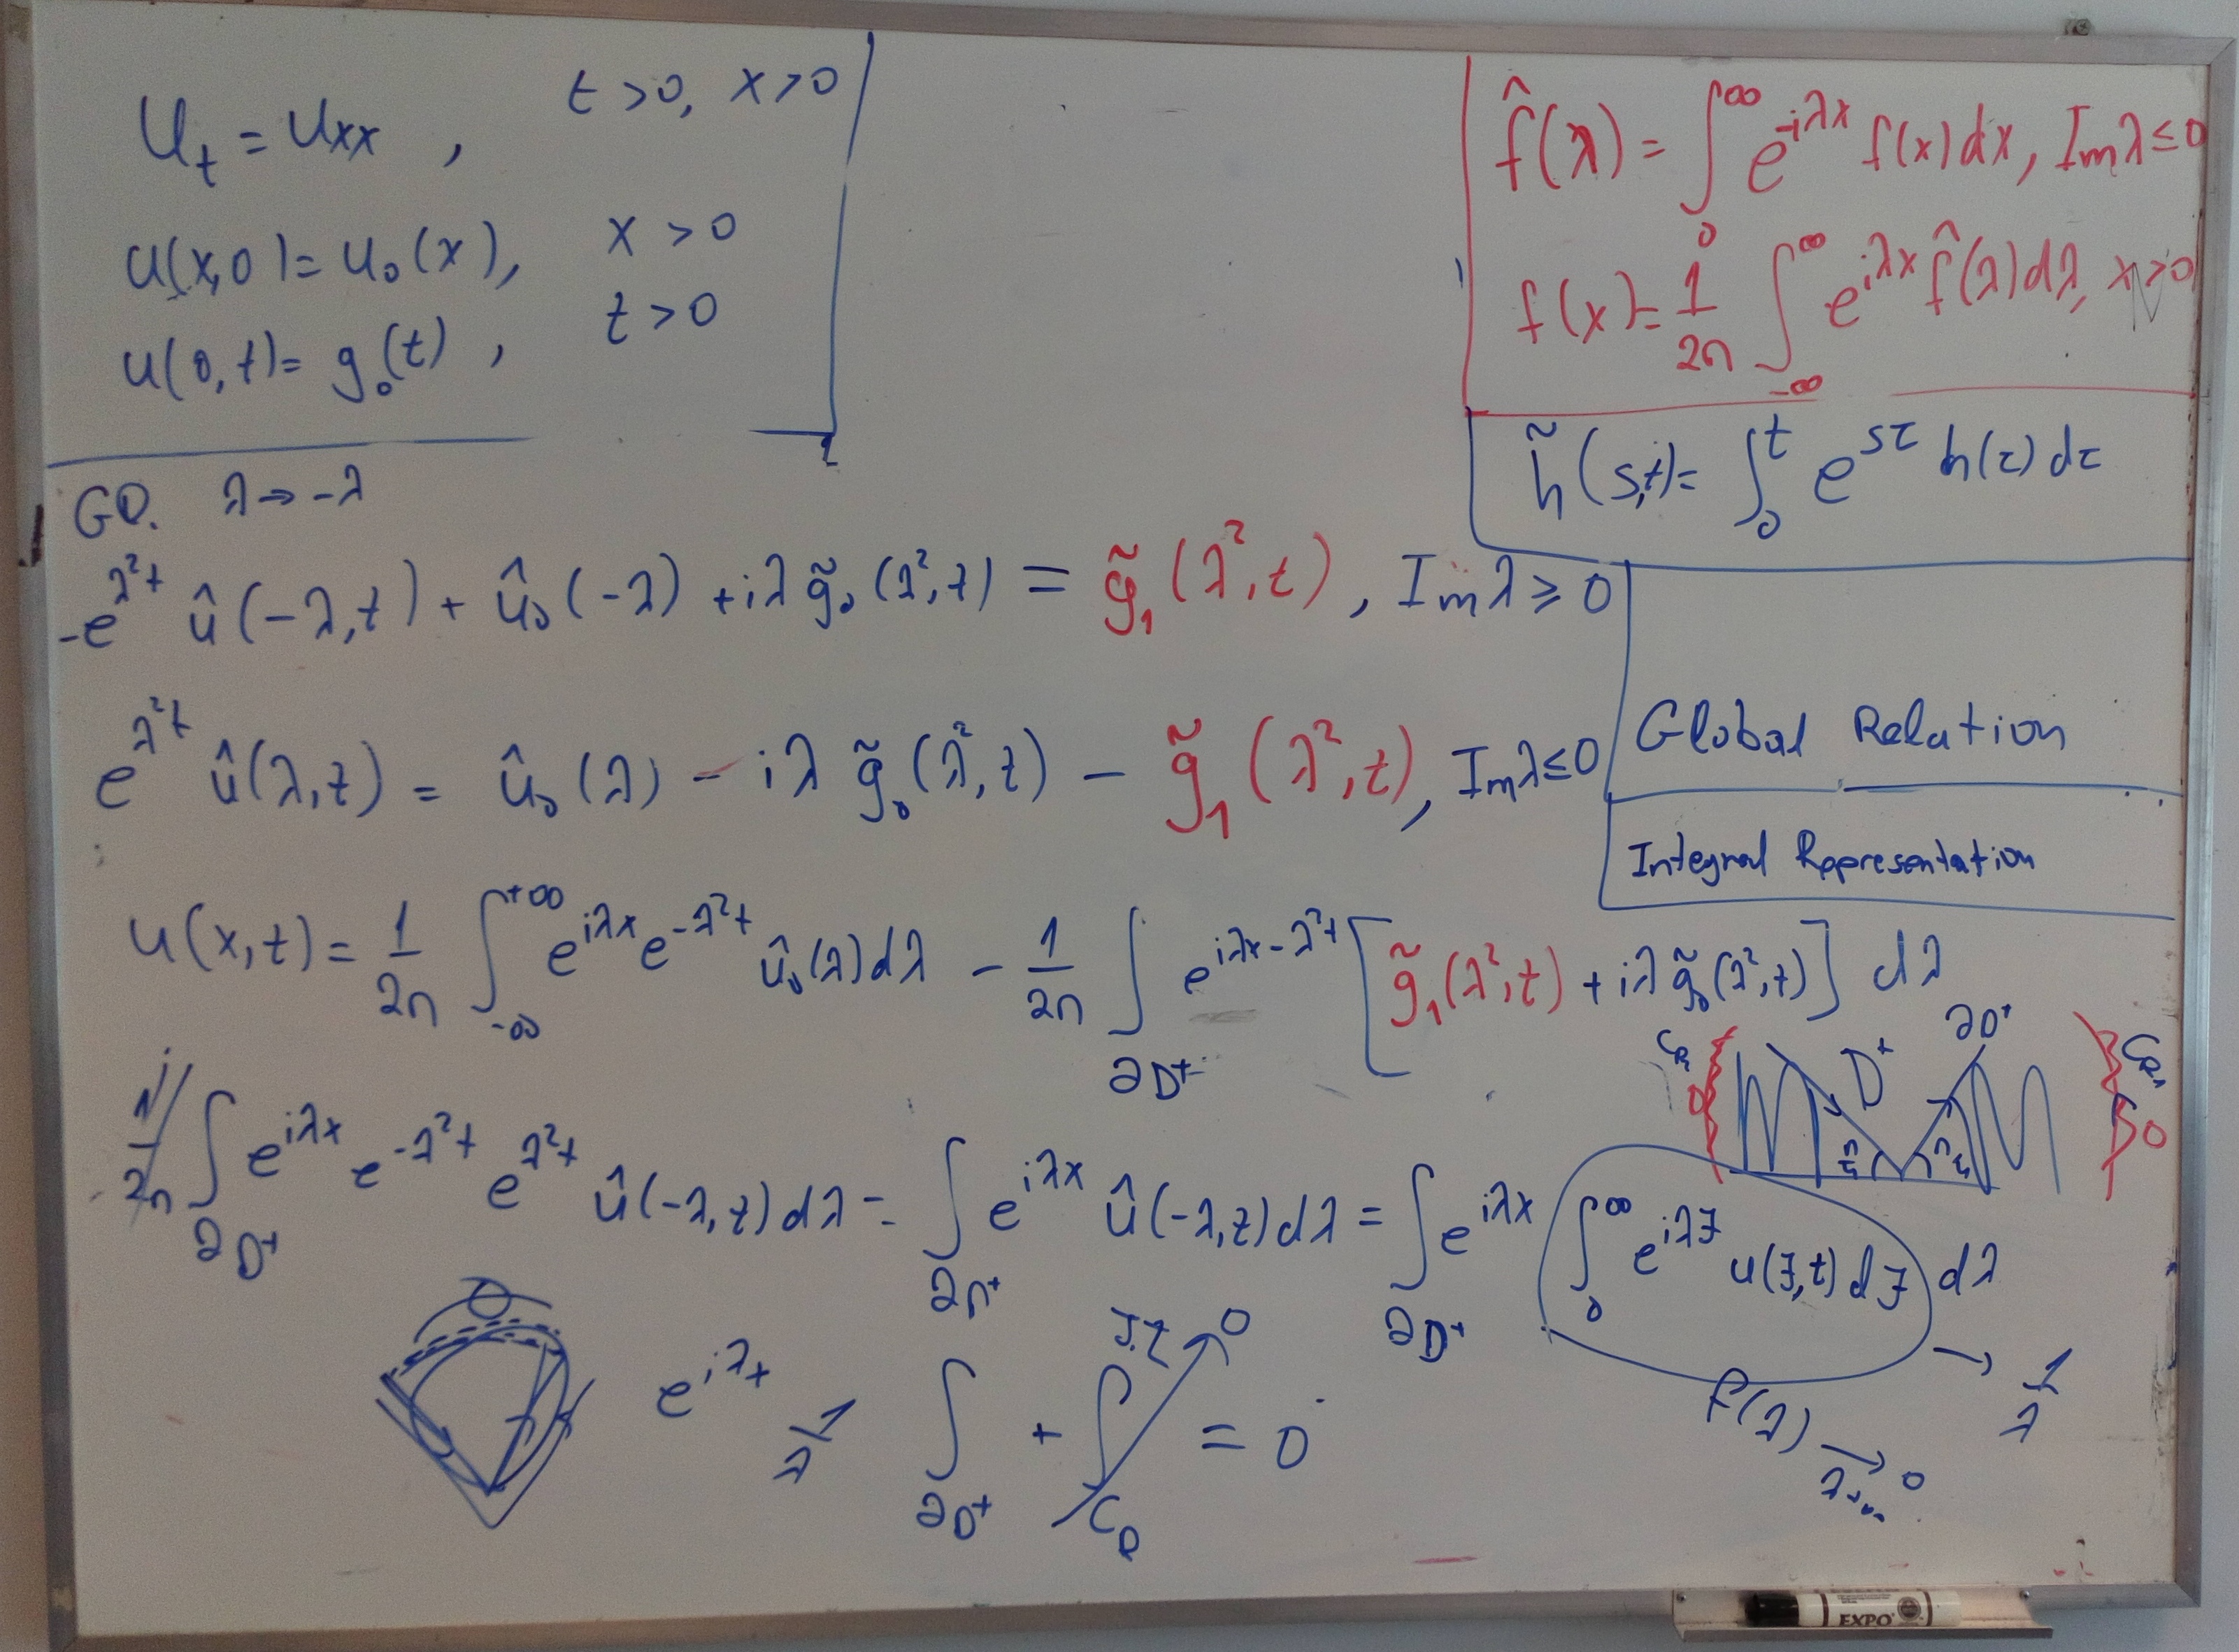 u_t = u_xx , t > 0, x > 0
u(x,0) = u₀(x), x > 0
u(0,t) = g₀(t) , t > 0
f̂(λ) = ∫_0^∞ e^{-iλx} f(x) dx, Im λ ≤ 0
f(x) = 1/2π ∫_{-∞}^∞ e^{iλx} f̂(λ) dλ, x > 0
h̃(s,t) = ∫_0^t e^{sτ} h(τ) dτ
λ → -λ
-e^{λ²t} û(-λ,t) + û₀(-λ) + iλ g̃₀(λ²,t) = g̃₁(λ²,t), Im λ ≥ 0
e^{λ²t} û(λ,t) = û₀(λ) - iλ g̃₀(λ²,t) - g̃₁(λ²,t), Im λ ≤ 0
Global Relation
Integral Representation
u(x,t) = 1/2π ∫_{-∞}^{+∞} e^{iλx} e^{-λ²t} û₀(λ) dλ - 1/2π ∫_{∂D⁺} e^{iλx-λ²t} [g̃₁(λ²,t) + iλ g̃₀(λ²,t)] dλ
C_R D⁺ ∂D⁺ C_R
0 π/4 π/4 0
1/2π ∫_{∂D⁺} e^{iλx} e^{-λ²t} e^{λ²t} û(-λ,t) dλ = ∫_{∂D⁺} e^{iλx} û(-λ,t) dλ = ∫_{∂D⁺} e^{iλx} ∫_0^∞ e^{iλξ} u(ξ,t) dξ dλ
0
e^{iλx} 1/λ ∫_{∂D⁺} + ∫_{C_R} → 0 = 0
F(λ) → 0 → 1/λ
λ→∞
EXPO